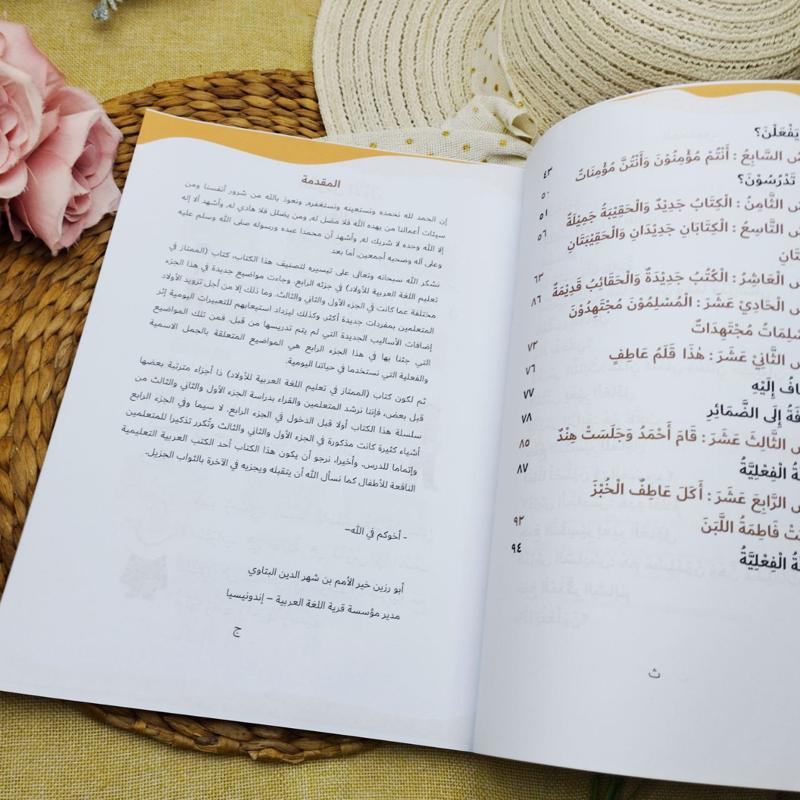 يَفْعَلْنَ؟
السَّابِعُ : أَنْتُمْ مُؤْمِنُوْنَ وَأَنْتُنَّ مُؤْمِنَاتٌ ٤٣
تَدْرُسُوْنَ؟ ٥٠
الثَّامِنُ : الْكِتَابُ جَدِيْدٌ وَالْحَقِيْبَةُ جَمِيْلَةٌ ٥١
التَّاسِعُ : الْكِتَابَانِ جَدِيْدَانِ وَالْحَقِيْبَتَانِ ٥٦
الْعَاشِرُ : الْكُتُبُ جَدِيْدَةٌ وَالْحَقَائِبُ قَدِيْمَةٌ ٦٣
الْحَادِيْ عَشَرَ : الْمُسْلِمُوْنَ مُجْتَهِدُوْنَ ٨٦
مُجْتَهِدَاتٌ
الثَّانِيْ عَشَرَ : هٰذَا قَلَمُ عَاطِفٍ ٧٣
إِلَيْهِ ٧٦
إِلَى الضَّمَائِرِ ٧٧
٧٨
الثَّالِثَ عَشَرَ : قَامَ أَحْمَدُ وَجَلَسَتْ هِنْدٌ ٨٥
الْفِعْلِيَّةُ ٨٧
الرَّابِعَ عَشَرَ : أَكَلَ عَاطِفٌ الْخُبْزَ
فَاطِمَةُ اللَّبَنَ ٩٣
الْفِعْلِيَّةُ ٩٤
ث
المقدمة
إن الحمد لله نحمده ونستعينه ونستغفره، ونعوذ بالله من شرور أنفسنا ومن
سيئات أعمالنا من يهده الله فلا مضل له، ومن يضلل فلا هادي له، وأشهد أن لا إله
إلا الله وحده لا شريك له، وأشهد أن محمدا عبده ورسوله صلى الله وسلم عليه
وعلى آله وصحبه أجمعين، أما بعد
نشكر الله سبحانه وتعالى على تيسيره لتصنيف هذا الكتاب، كتاب (الممتاز في
تعليم اللغة العربية للأولاد) في جزئه الرابع. وجاءت مواضيع جديدة في هذا الجزء
مختلفة عما كانت في الجزء الأول والثاني والثالث. وما ذلك إلا من أجل تزويد الأولاد
المتعلمين بمفردات جديدة أكثر، وكذلك ليزداد استيعابهم للتعبيرات اليومية إثر
إضافات الأساليب الجديدة التي لم يتم تدريسها من قبل. فمن تلك المواضيع
التي جئنا بها في هذا الجزء الرابع هي المواضيع المتعلقة بالجمل الاسمية
والفعلية التي نستخدمها في حياتنا اليومية.
ثم لكون كتاب (الممتاز في تعليم اللغة العربية للأولاد) ذا أجزاء مترتبة بعضها
قبل بعض، فإننا نرشد المتعلمين والقراء بدراسة الجزء الأول والثاني والثالث من
سلسلة هذا الكتاب أولا قبل الدخول في الجزء الرابع. لا سيما وفي الجزء الرابع
أشياء كثيرة كانت مذكورة في الجزء الأول والثاني والثالث وتُكرر تذكيرا للمتعلمين
وإتماما للدرس. وأخيرا، نرجو أن يكون هذا الكتاب أحد الكتب العربية التعليمية
النافعة للأطفال كما نسأل الله أن يتقبله ويجزيه في الآخرة بالثواب الجزيل.
- أخوكم في الله–
أبو رزين خير الأمم بن شهر الدين البتاوي
مدير مؤسسة قرية اللغة العربية – إندونيسيا
ج